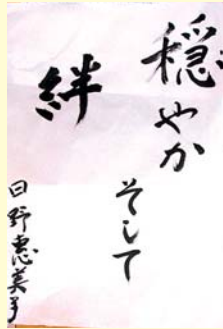 穏やか
そして
絆
日野恵美子